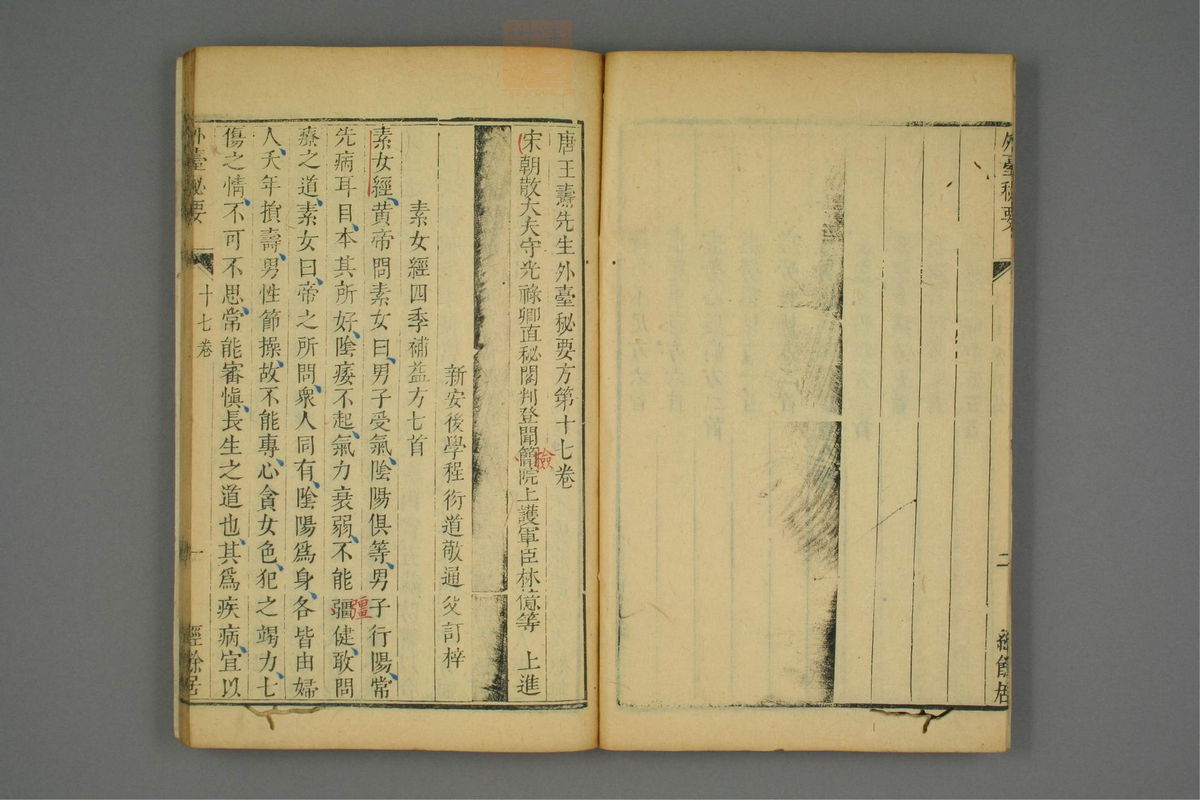 外臺秘要
二
經餘居
唐王燾先生外臺秘要方第十七卷
宋朝散大夫守光祿卿直秘閣判登聞簡院上護軍臣林億等 上進
檢
新安後學程衍道敬通父訂梓
素女經四季補益方七首
素女經黃帝問素女曰男子受氣陰陽俱等男子行陽常
先病耳目本其所好陰痿不起氣力衰弱不能彊健敢問
疆
療之道素女曰帝之所問衆人同有陰陽爲身各皆由婦
人夭年損壽男性節操故不能專心貪女色犯之竭力七
傷之情不可不思常能審愼長生之道也其爲疾病宜以
外臺秘要
十七卷
一
經餘居